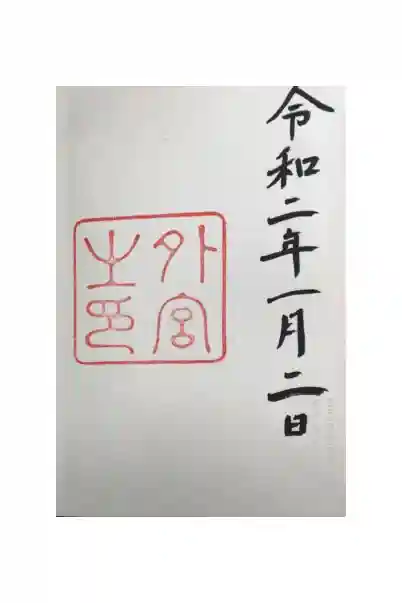 令和二年一月二日
外宮
之印